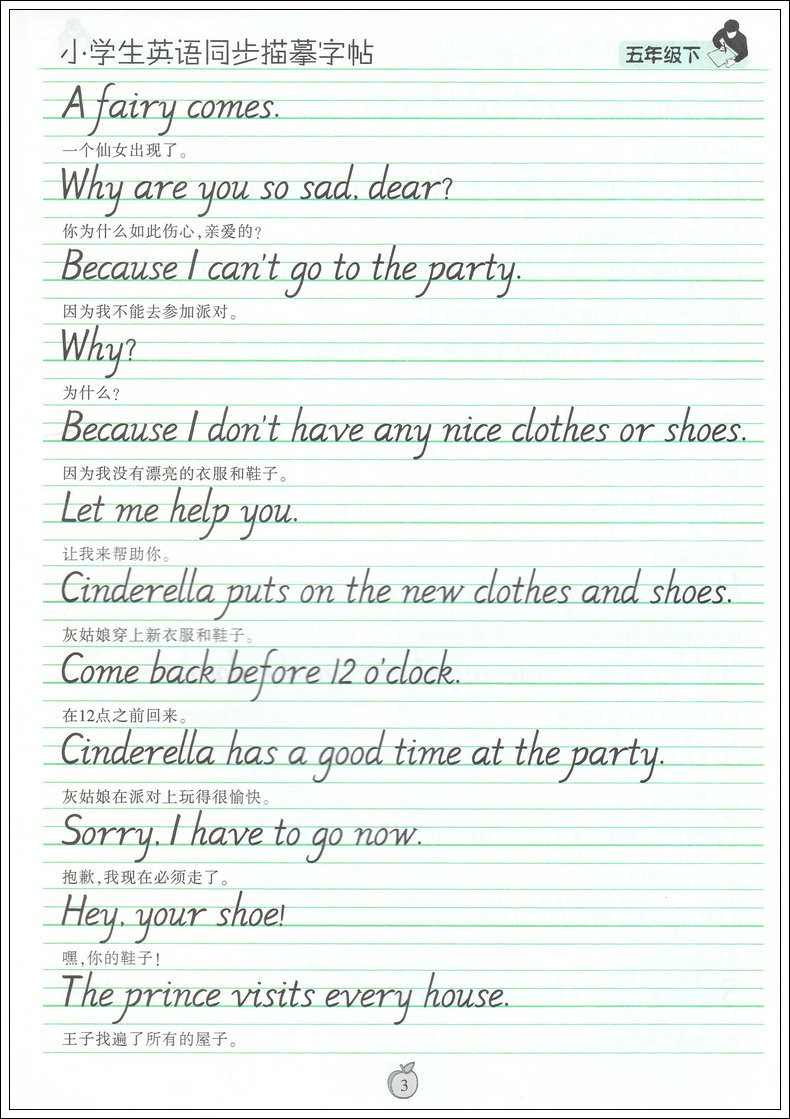 小学生英语同步描摹字帖
五年级下
A fairy comes.
一个仙女出现了。
Why are you so sad, dear?
你为什么如此伤心,亲爱的?
Because I can't go to the party.
因为我不能去参加派对。
Why?
为什么?
Because I don't have any nice clothes or shoes.
因为我没有漂亮的衣服和鞋子。
Let me help you.
让我来帮助你。
Cinderella puts on the new clothes and shoes.
灰姑娘穿上新衣服和鞋子。
Come back before 12 o'clock.
在12点之前回来。
Cinderella has a good time at the party.
灰姑娘在派对上玩得很愉快。
Sorry, I have to go now.
抱歉,我现在必须走了。
Hey, your shoe!
嘿,你的鞋子!
The prince visits every house.
王子找遍了所有的屋子。
3